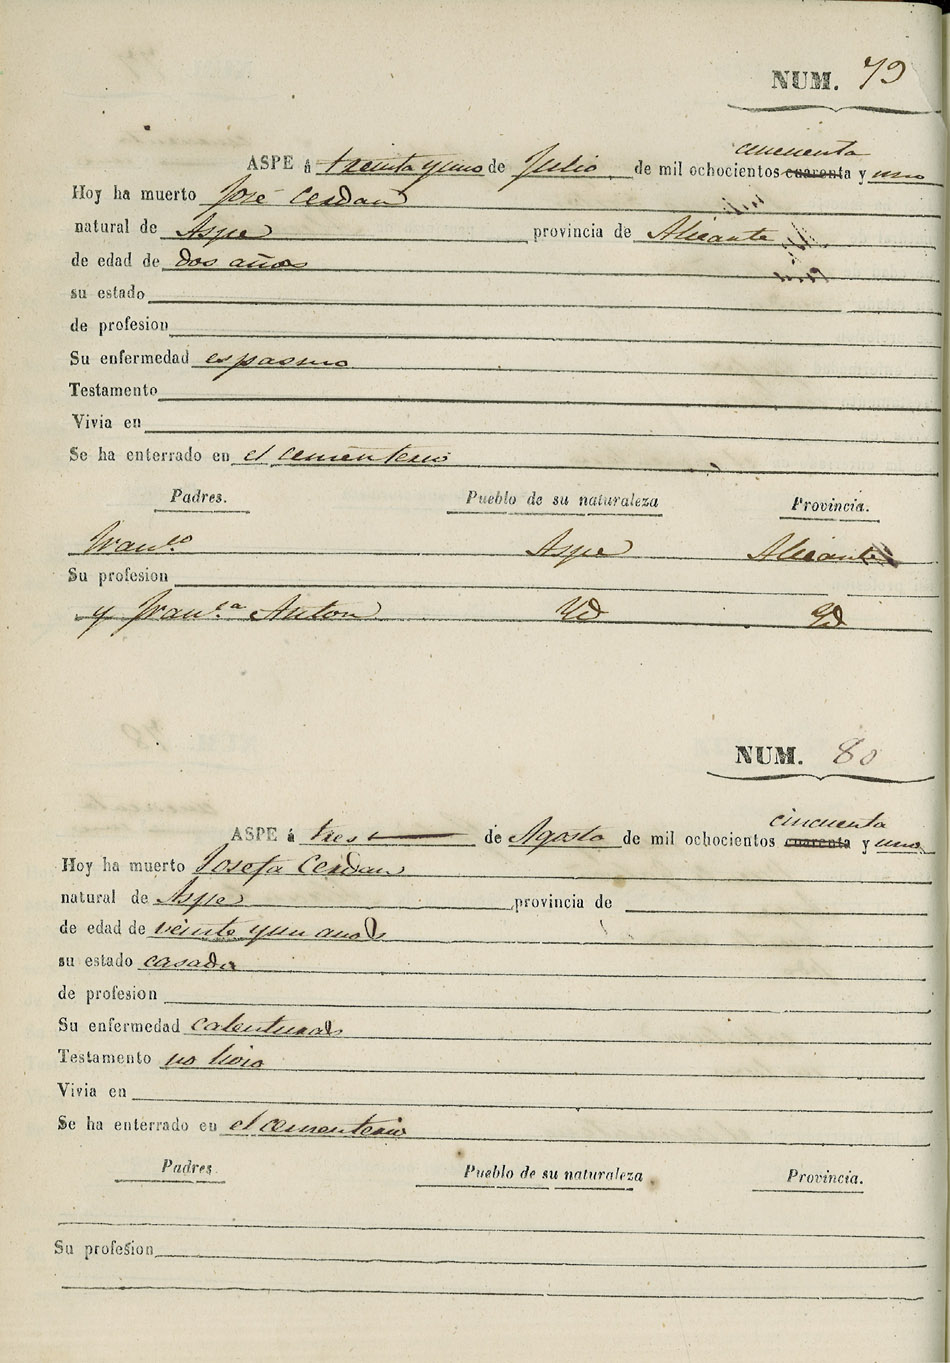 NUM. 79
cincuenta
ASPE á treinta y uno de Julio de mil ochocientos cuarenta y uno
Hoy ha muerto José Cerdan
natural de Aspe provincia de Alicante
de edad de dos años
su estado
de profesion
Su enfermedad espasmo
Testamento
Vivia en
Se ha enterrado en el cementerio
Padres. Pueblo de su naturaleza Provincia.
Franco Aspe Alicante
Su profesion
y Franca Anton Yd Yd
NUM. 80
cincuenta
ASPE á tres de Agosto de mil ochocientos cuarenta y uno
Hoy ha muerto Josefa Cerdan
natural de Aspe provincia de
de edad de veinte y un anos
su estado casada
de profesion
Su enfermedad calenturas
Testamento no hiso
Vivia en
Se ha enterrado en el cementerio
Padres. Pueblo de su naturaleza Provincia.
Su profesion